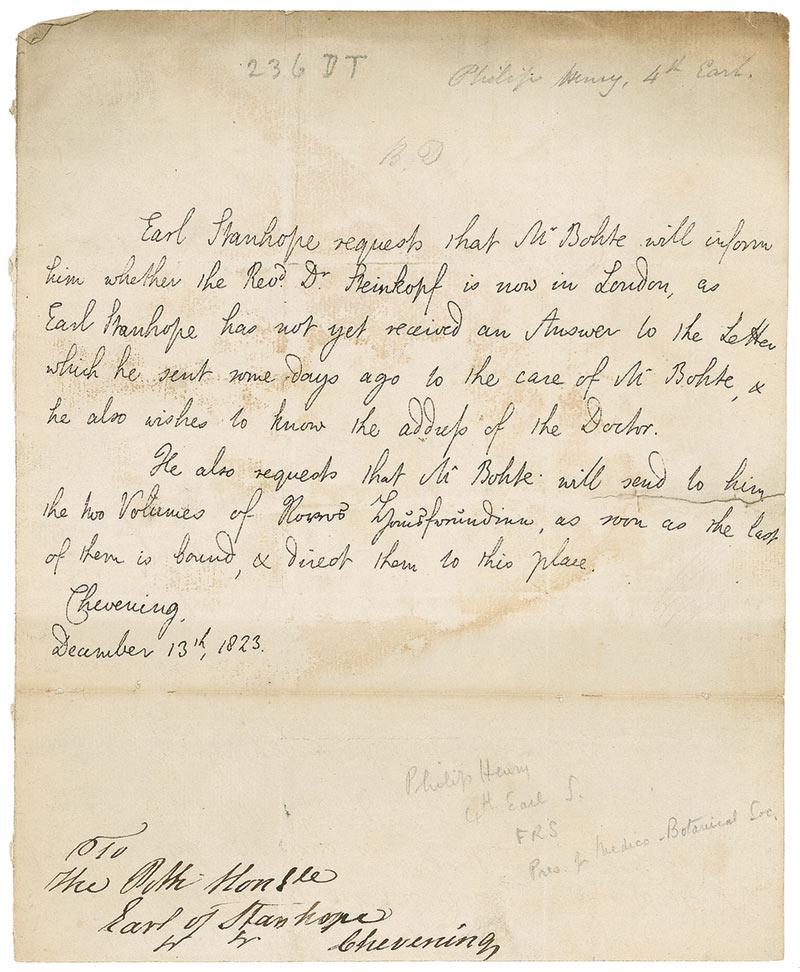 236 DT
Philip Henry, 4th Earl.
B. D
Earl Stanhope requests that Mr Bohte will inform
him whether the Revd. Dr Steinkopf is now in London, as
Earl Stanhope has not yet received an Answer to the Letter
which he sent some days ago to the care of Mr Bohte, &
he also wishes to know the addreſs of the Doctor.
He also requests that Mr Bohte will send to him
the two Volumes of, as soon as the last
of them is bound, & direct them to this place.
Chevening,
December 13th, 1823.
Philip Henry
4th Earl S.
FRS
Pres. of Medico-Botanical Soc.
To
The Honble
Earl of Stanhope
Chevening